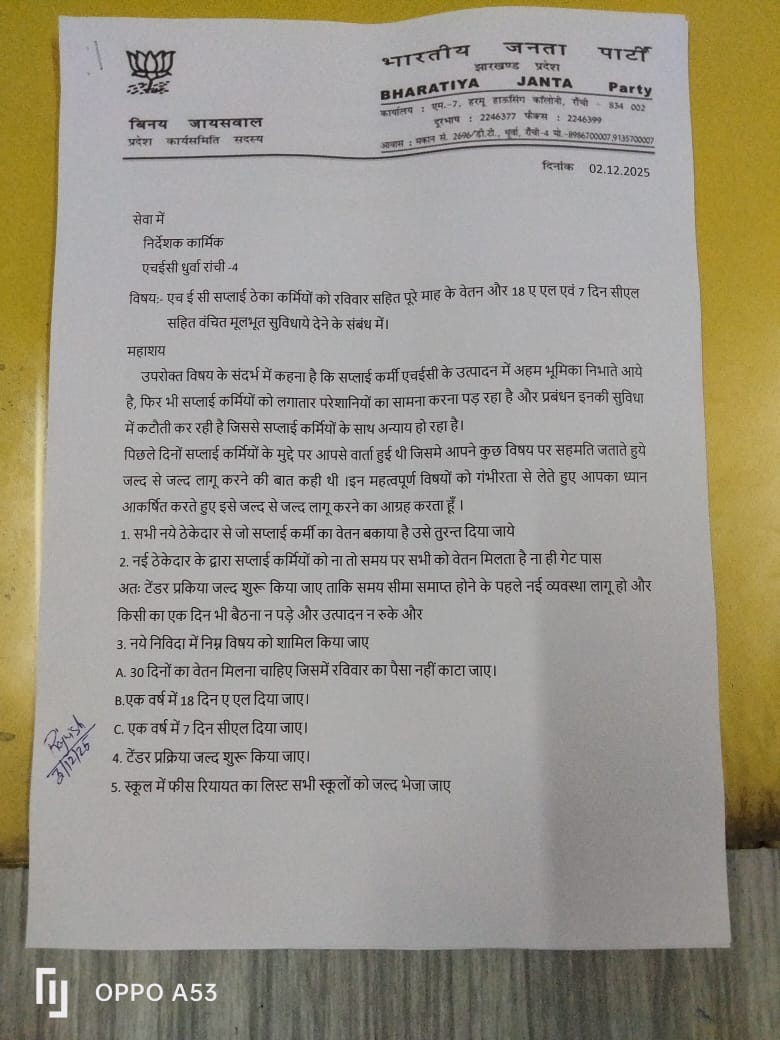 भारतीय जनता पार्टी
झारखण्ड प्रदेश
BHARATIYA JANTA Party
कार्यालय : एम.-7, हरमू हाऊसिंग कॉलोनी, राँची - 834 002
दुरभाष : 2246377 फैक्स : 2246399
आवास : मकान सं. 2696/डी.टी., धुर्वा, राँची-4 मो.-8986700007,9135700007
बिनय जायसवाल
प्रदेश कार्यसमिति सदस्य
दिनांक 02.12.2025
सेवा में
निर्देशक कार्मिक
एचईसी धुर्वा रांची -4
विषय:- एच ई सी सप्लाई ठेका कर्मियों को रविवार सहित पूरे माह के वेतन और 18 ए एल एवं 7 दिन सीएल
सहित वंचित मूलभूत सुविधाये देने के संबंध में।
महाशय
उपरोक्त विषय के संदर्भ में कहना है कि सप्लाई कर्मी एचईसी के उत्पादन में अहम भूमिका निभाते आये
है, फिर भी सप्लाई कर्मियों को लगातार परेशानियों का सामना करना पड़ रहा है और प्रबंधन इनकी सुविधा
में कटौती कर रही है जिससे सप्लाई कर्मियों के साथ अन्याय हो रहा है।
पिछले दिनों सप्लाई कर्मियों के मुद्दे पर आपसे वार्ता हुई थी जिसमे आपने कुछ विषय पर सहमति जताते हुये
जल्द से जल्द लागू करने की बात कही थी ।इन महत्वपूर्ण विषयों को गंभीरता से लेते हुए आपका ध्यान
आकर्षित करते हुए इसे जल्द से जल्द लागू करने का आग्रह करता हूँ ।
1. सभी नये ठेकेदार से जो सप्लाई कर्मी का वेतन बकाया है उसे तुरन्त दिया जाये
2. नई ठेकेदार के द्वारा सप्लाई कर्मियों को ना तो समय पर सभी को वेतन मिलता है ना ही गेट पास
अतः टेंडर प्रकिया जल्द शुरू किया जाए ताकि समय सीमा समाप्त होने के पहले नई व्यवस्था लागू हो और
किसी का एक दिन भी बैठना न पड़े और उत्पादन न रुके और
3. नये निविदा में निम्न विषय को शामिल किया जाए
A. 30 दिनों का वेतन मिलना चाहिए जिसमें रविवार का पैसा नहीं काटा जाए।
B.एक वर्ष में 18 दिन ए एल दिया जाए।
C. एक वर्ष में 7 दिन सीएल दिया जाए।
4. टेंडर प्रक्रिया जल्द शुरू किया जाए।
5. स्कूल में फीस रियायत का लिस्ट सभी स्कूलों को जल्द भेजा जाए
3/12/25
OPPO A53